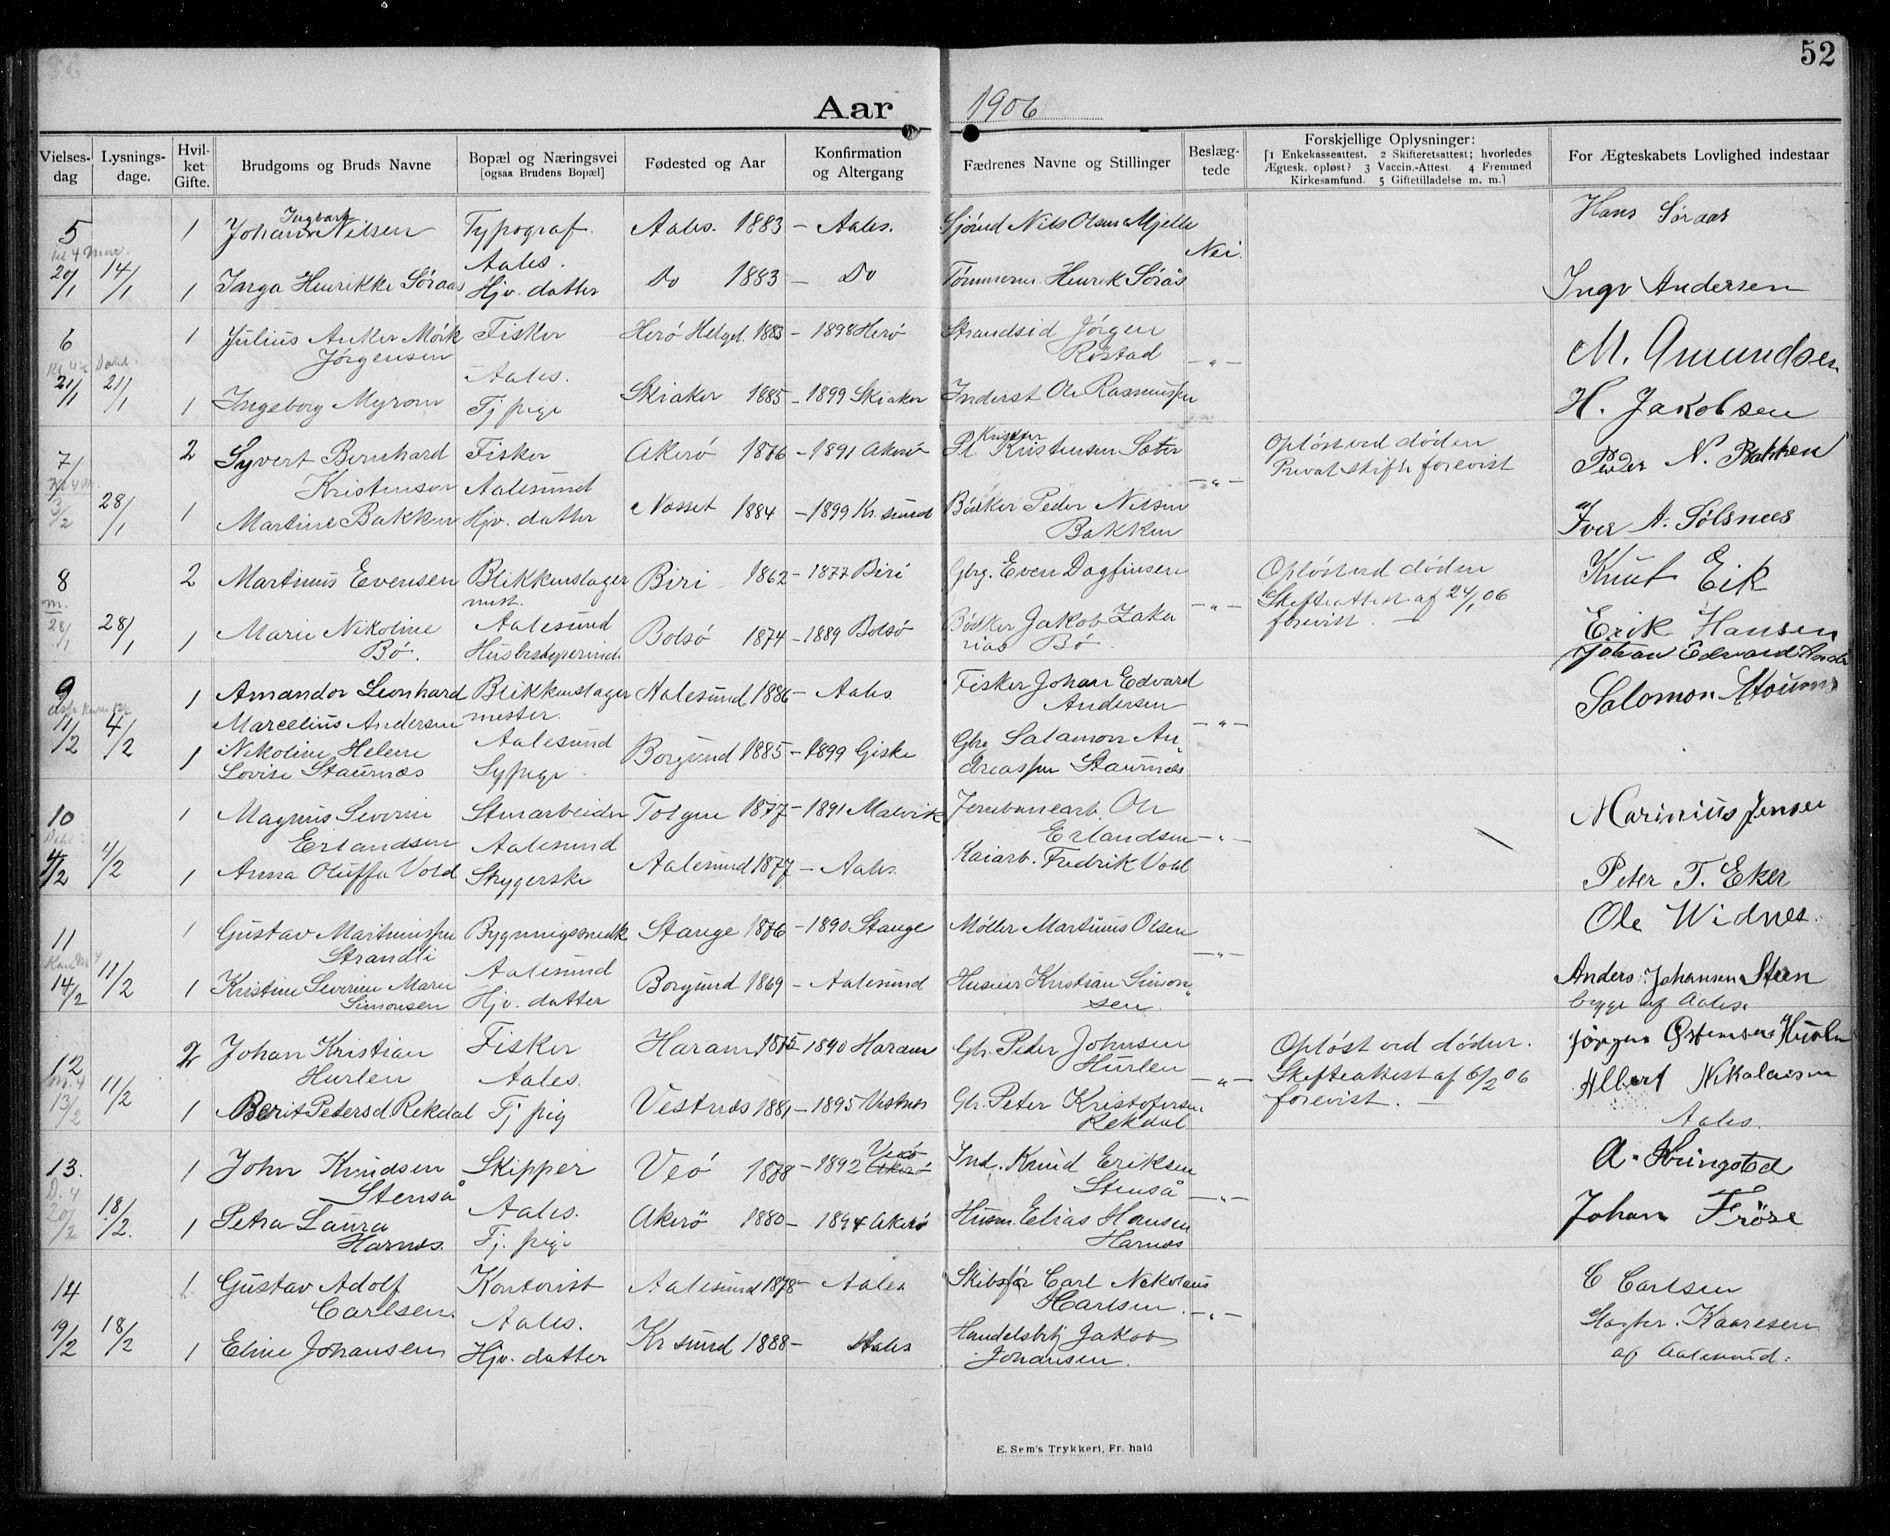 52
Aar 1906
Vielses-dag Lysnings-dage. Hvilket Gifte. Brudgoms og Bruds Navne Bopæl og Næringsvei [ogsaa Brudens Bopæl] Fødested og Aar Konfirmation og Altergang Fædrenes Navne og Stillinger Beslægtede Forskjellige Oplysninger: [1 Enkekasseattest. 2 Skifteretsattest; hvorledes Ægtesk. opløst? 3 Vaccin.-Attest. 4 Fremmed Kirkesamfund. 5 Giftetilladelse m. m.] For Ægteskabets Lovlighed indestaar
Ingvart
5 1 Johan Nilsen Typograf. Aales. 1883 – Aales. Sjømd Nils Olsen Mjelle Hans Søraas
Aales. Nei.
20/1 14/1 1 Inga Henrikke Søraas Hjv. datter Do 1883 – Do Tømmerm. Henrik Sørås Ingv Andersen
6 1 Julius Anker Mørk Fisker Herø Helgel. 1883 – 1898 Herø Strandsid Jørgen M. Amundsen
Jørgensen Aales. Røstad –„–
21/1 21/1 1 Ingeborg Myrom Tj pige Skiaker 1885 – 1899 Skiaker Inderst Ole Rasmussen H. Jakobsen
7 2 Syvert Bernhard Fisker Akerø 1876 – 1891 Akerø Pl. Kristensen Sæter Opløst ved døden Peder N. Bakken
Kristensen Aalesund –„– Privat skifte forevist
3/2 28/1 1 Martine Bakken Hjv. datter Nesset 1884 – 1899 Kr. sund Bødker Peder Nilsen Iver A. Sølsnes
Bakken
8 2 Martinus Evensen Blikkenslager Biri 1862 – 1877 Biri Gbrg. Even Dagfinsen Opløst ved døden Knut Eik
mest. –„– Skifteattest af 24/1 06
28/1 28/1 1 Marie Nikoline Aalesund Bolsø 1874 – 1889 Bolsø Bødker Jakob Zaka forevist. – Erik Hansen
Bø. Husbestyrerinde rias Bø. Johan Edvard
9 1 Amandor Leonhard Blikkenslager Aalesund 1886 – Aales Fisker Johan Edvard Salomon
Marcelius Andersen mester. Andersen –„–
11/2 4/2 1 Nikoline Helene Aalesund Borgund 1885 – 1899 Giske Gbr. Salamon An
Lovise Staurnæs Sypige dreassen Staurnæs
10 1 Magnus Severin Stenarbeider Tolgen 1877 – 1891 Malvik Jernbanearb. Ole Marinius Jensen
Erlandsen Aalesund Erlandsen –„–
4/2 4/2 1 Anna Oluffa Vold Strygerske Aalesund 1877 – Aales. Kaiarb. Fredrik Vold Peter T. Eker
11 1 Gustav Martinussen Bygningssnedk Stange 1876 – 1890 Stange Møller Martinus Olsen Ole Widnes.
Strandli Aalesund –„–
14/2 11/2 1 Kristine Severine Marie Hjv. datter Borgund 1869 – Aalesund Huseier Kristian Simon Anders Johansen Steen
Simonsen sen. begge af Aales.
12 2 Johan Kristian Fisker Haram 1875 – 1890 Haram Gbr. Peder Johnsen Opløst ved døden. Jørgen
Hurlen Aales. Hurlen –„– Skifteattest af 6/2 06 Albert Nikolaisen
13/2 11/2 1 Berit Petersd Rekdal Tj pig Vestnæs 1881 – 1895 Vestnæs Gbr. Peter Kristofersen forevist. – Aales.
Rekdal
13. 1 John Knudsen Skipper Veø 1878 – 1892 Veø Ind. Knud Eriksen A. Kringstad
Stenså Aales. Stenså –„–
20/2 18/2. 1 Petra Laura Tj. pige Akerø 1880 – 1894 Akerø Husm. Elias Hansen Johan Frøse
Harnæs. Harnæs
14 1 Gustav Adolf Kontorist Aalesund 1878 – Aales Skibsfør Carl Nikolaus C Carlsen
Carlsen. Aales. Karlsen. –„– Kaaresen
19/2 18/2 1 Eline Johansen Hjv. datter Kr sund 1888 – Aales Handelsbtj Jakob af Aalesund.
Johansen.
E. Sem's Trykkeri, Fr. hald